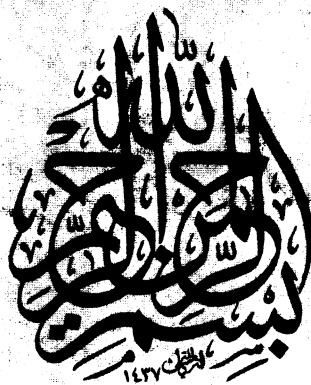 بسم الله الرحمن الرحيم
١٤٣٧